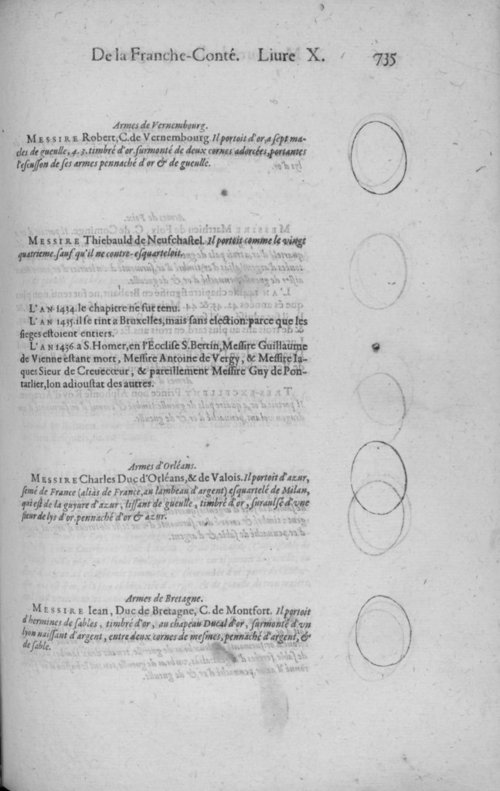 De la Franche-Conté. Liure X. 735
Armes de Vernembourg.
MESSIRE Robert, C. de Vernembourg. Il portoit d'or, a sept ma-
cles de gueulle, 4. 3. timbré d'or, surmonté de deux cornes adorcées, portantes
l'escusson de ses armes pennaché d'or & de gueulle.
MESSIRE Thiebauld de Neufchastel. Il portoit comme le vingt
quatrieme, sauf qu'il ne contre-esquarteloit.
L'AN 1434. le chapitre ne fut tenu.
L'AN 1435. il se tint a Bruxelles, mais sans election: parce que les
sieges estoient entiers.
L'AN 1436. a S. Homer, en l'Ecclise S. Bertin, Messire Guillaume
de Vienne estant mort, Messire Antoine de Vergy, & Messire Ia-
ques Sieur de Creuecœur, & pareillement Messire Guy de Pon-
tarlier, lon adioustat des autres.
Armes d'Orléans.
MESSIRE Charles Duc d'Orléans, & de Valois. Il portoit d'azur,
semé de France (aliàs de France, au lambeau d'argent) esquartelé de Milan,
qui est de la guyure d'azur, lissant de gueulle, timbré d'or, suraulsé d'vne
fleur de lys d'or, pennaché d'or & azur.
Armes de Bretagne.
MESSIRE Iean, Duc de Bretagne, C. de Montfort. Il portoit
d'hermines de sables, timbré d'or, au chapeau Ducal d'or, surmonté d'vn
lyon naissant d'argent, entre deux cornes de mesmes, pennaché d'argent, &
de sable.